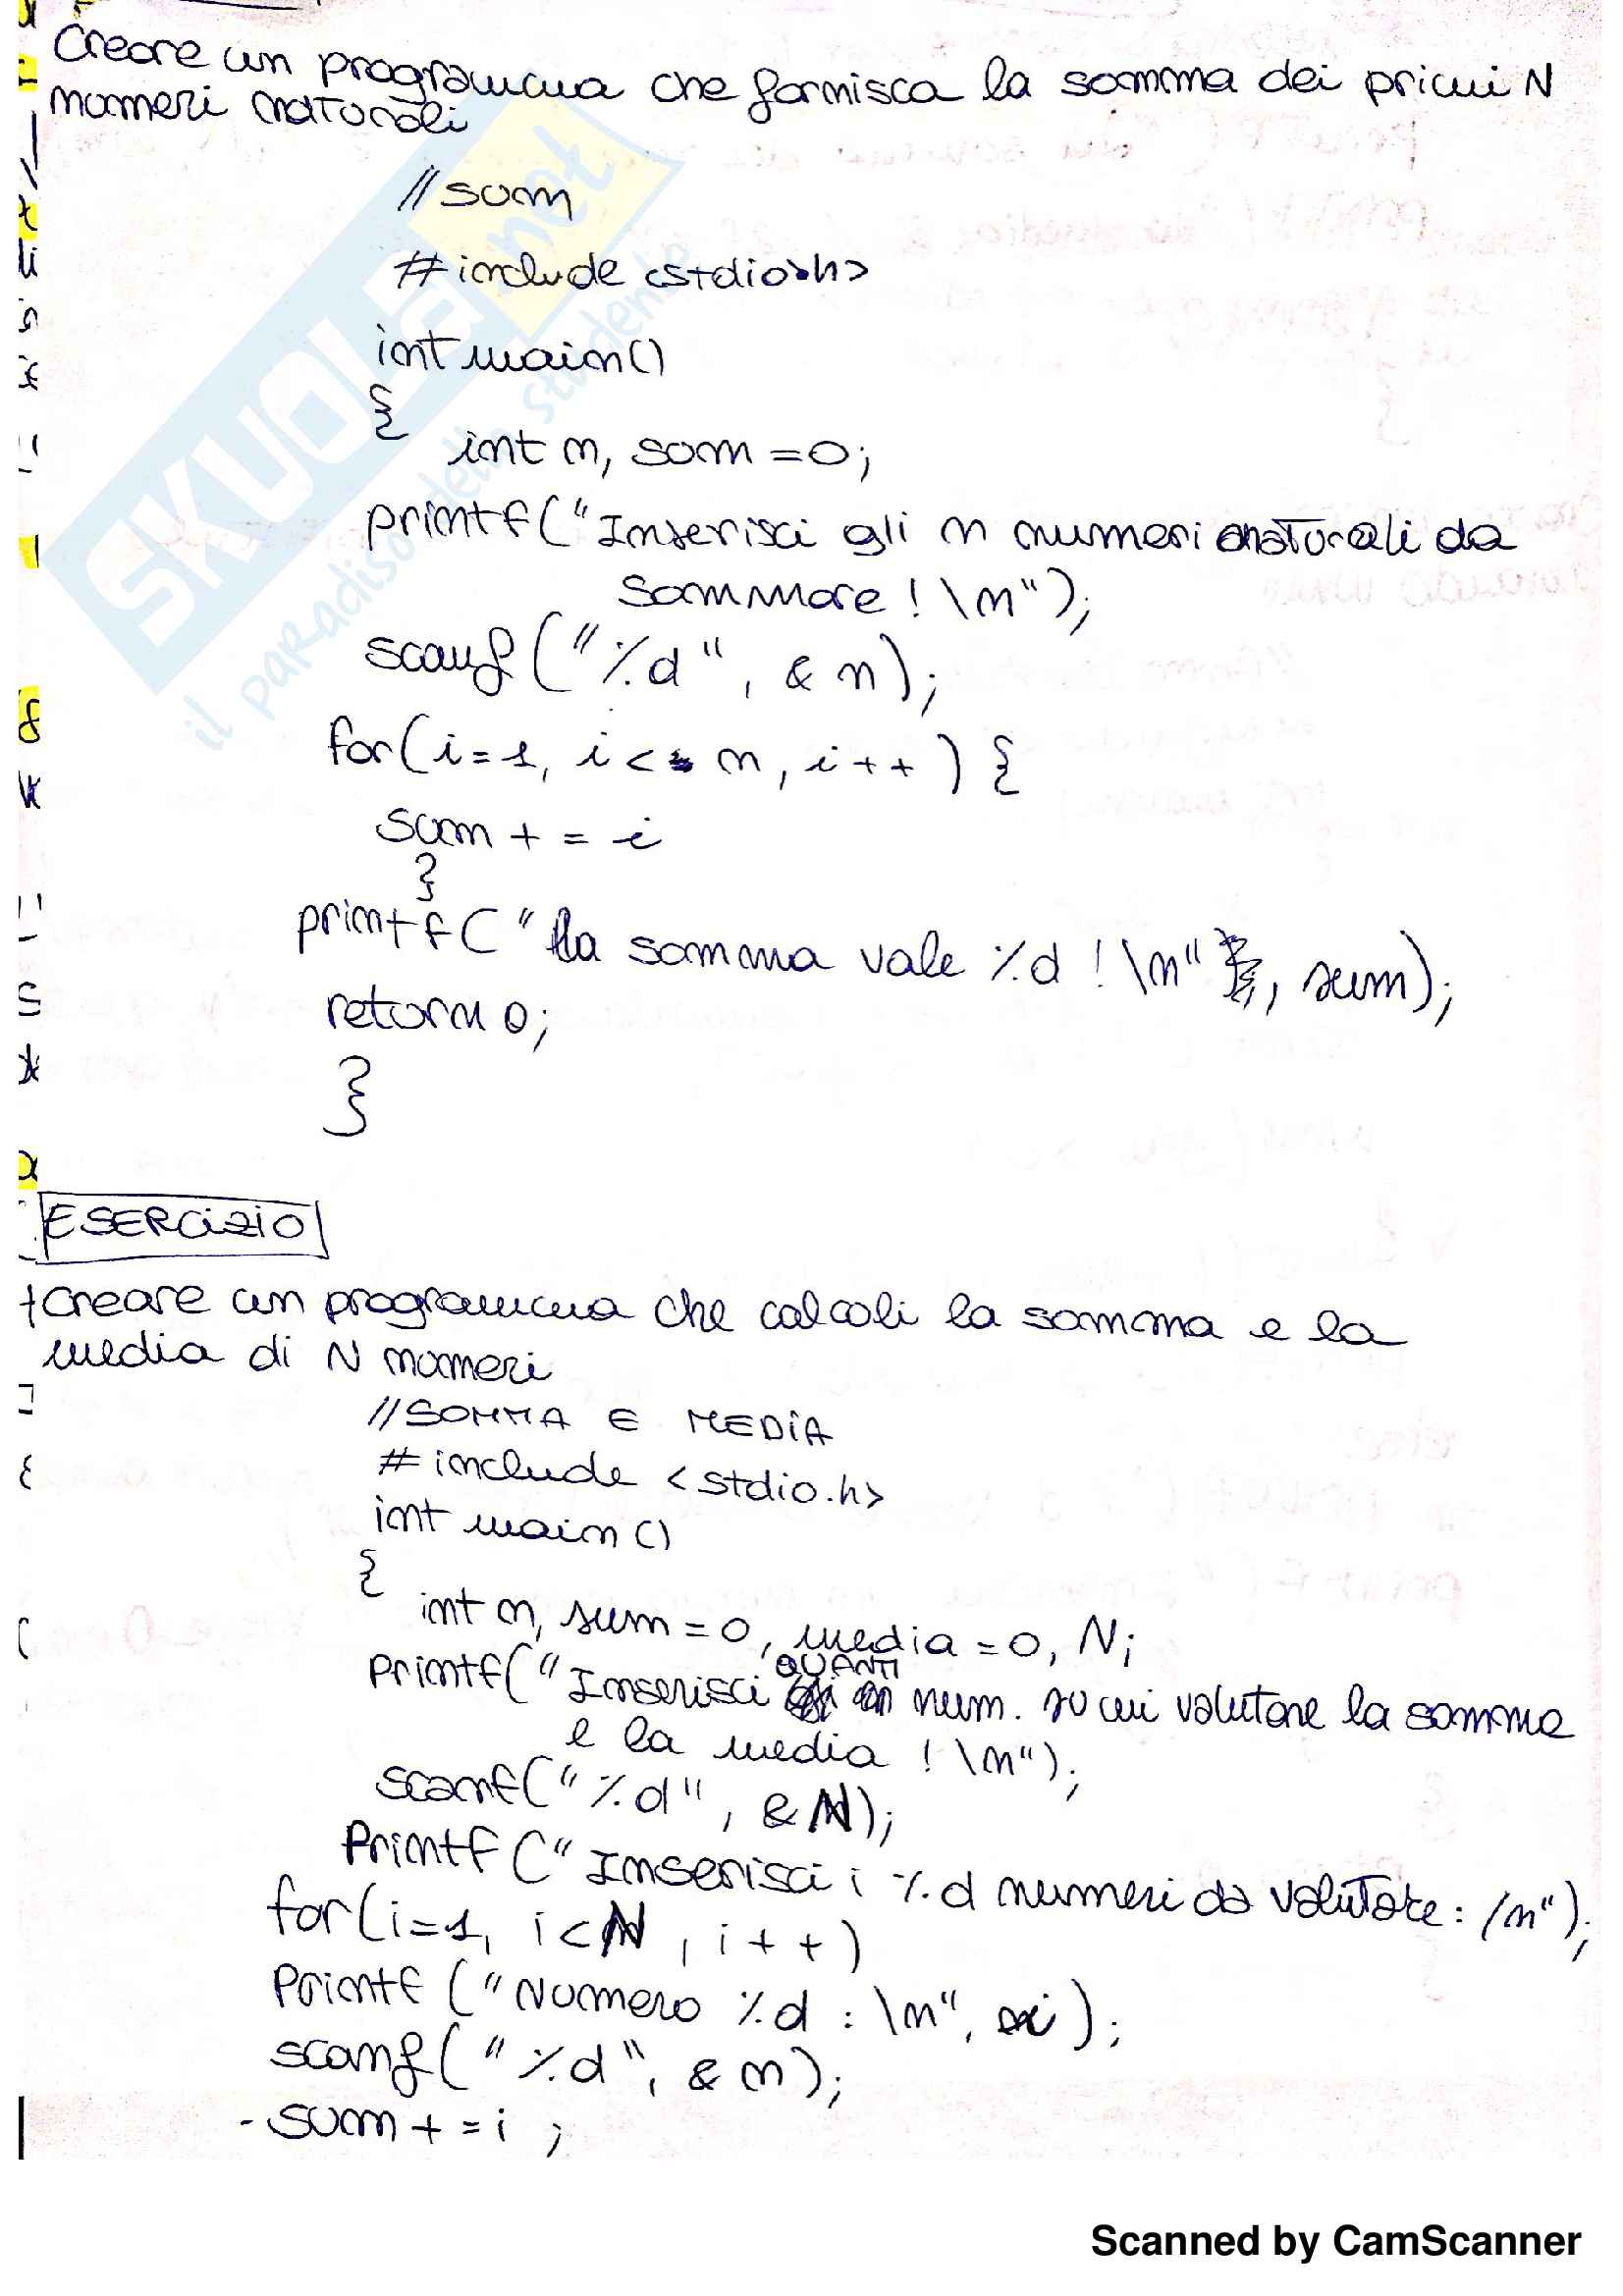 Creare un programma che fornisca la somma dei primi N
numeri naturali
//sum
#include <stdio.h>
int main()
{
int n, sum = 0;
printf("Inserisci gli n numeri naturali da
sommare! \n");
scanf("%d", &n);
for(i=1, i<= n, i++) {
sum += i
}
printf("la somma vale %d! \n", sum);
return 0;
}
ESERCIZIO
Creare un programma che calcoli la somma e la
media di N numeri
//SOMMA E MEDIA
#include <stdio.h>
int main()
{
int n, sum = 0, media = 0, N;
printf("Inserisci QUANTI num. su cui valutare la somma
e la media! \n");
scanf("%d", &N);
Printf("Inserisci i %d numeri da valutare: /n");
for(i=1, i<N, i++)
Printf("Numero %d: \n", i);
scanf("%d", &n);
- sum += i;
SKUOLA.net
il paradiso dello studente
Scanned by CamScanner